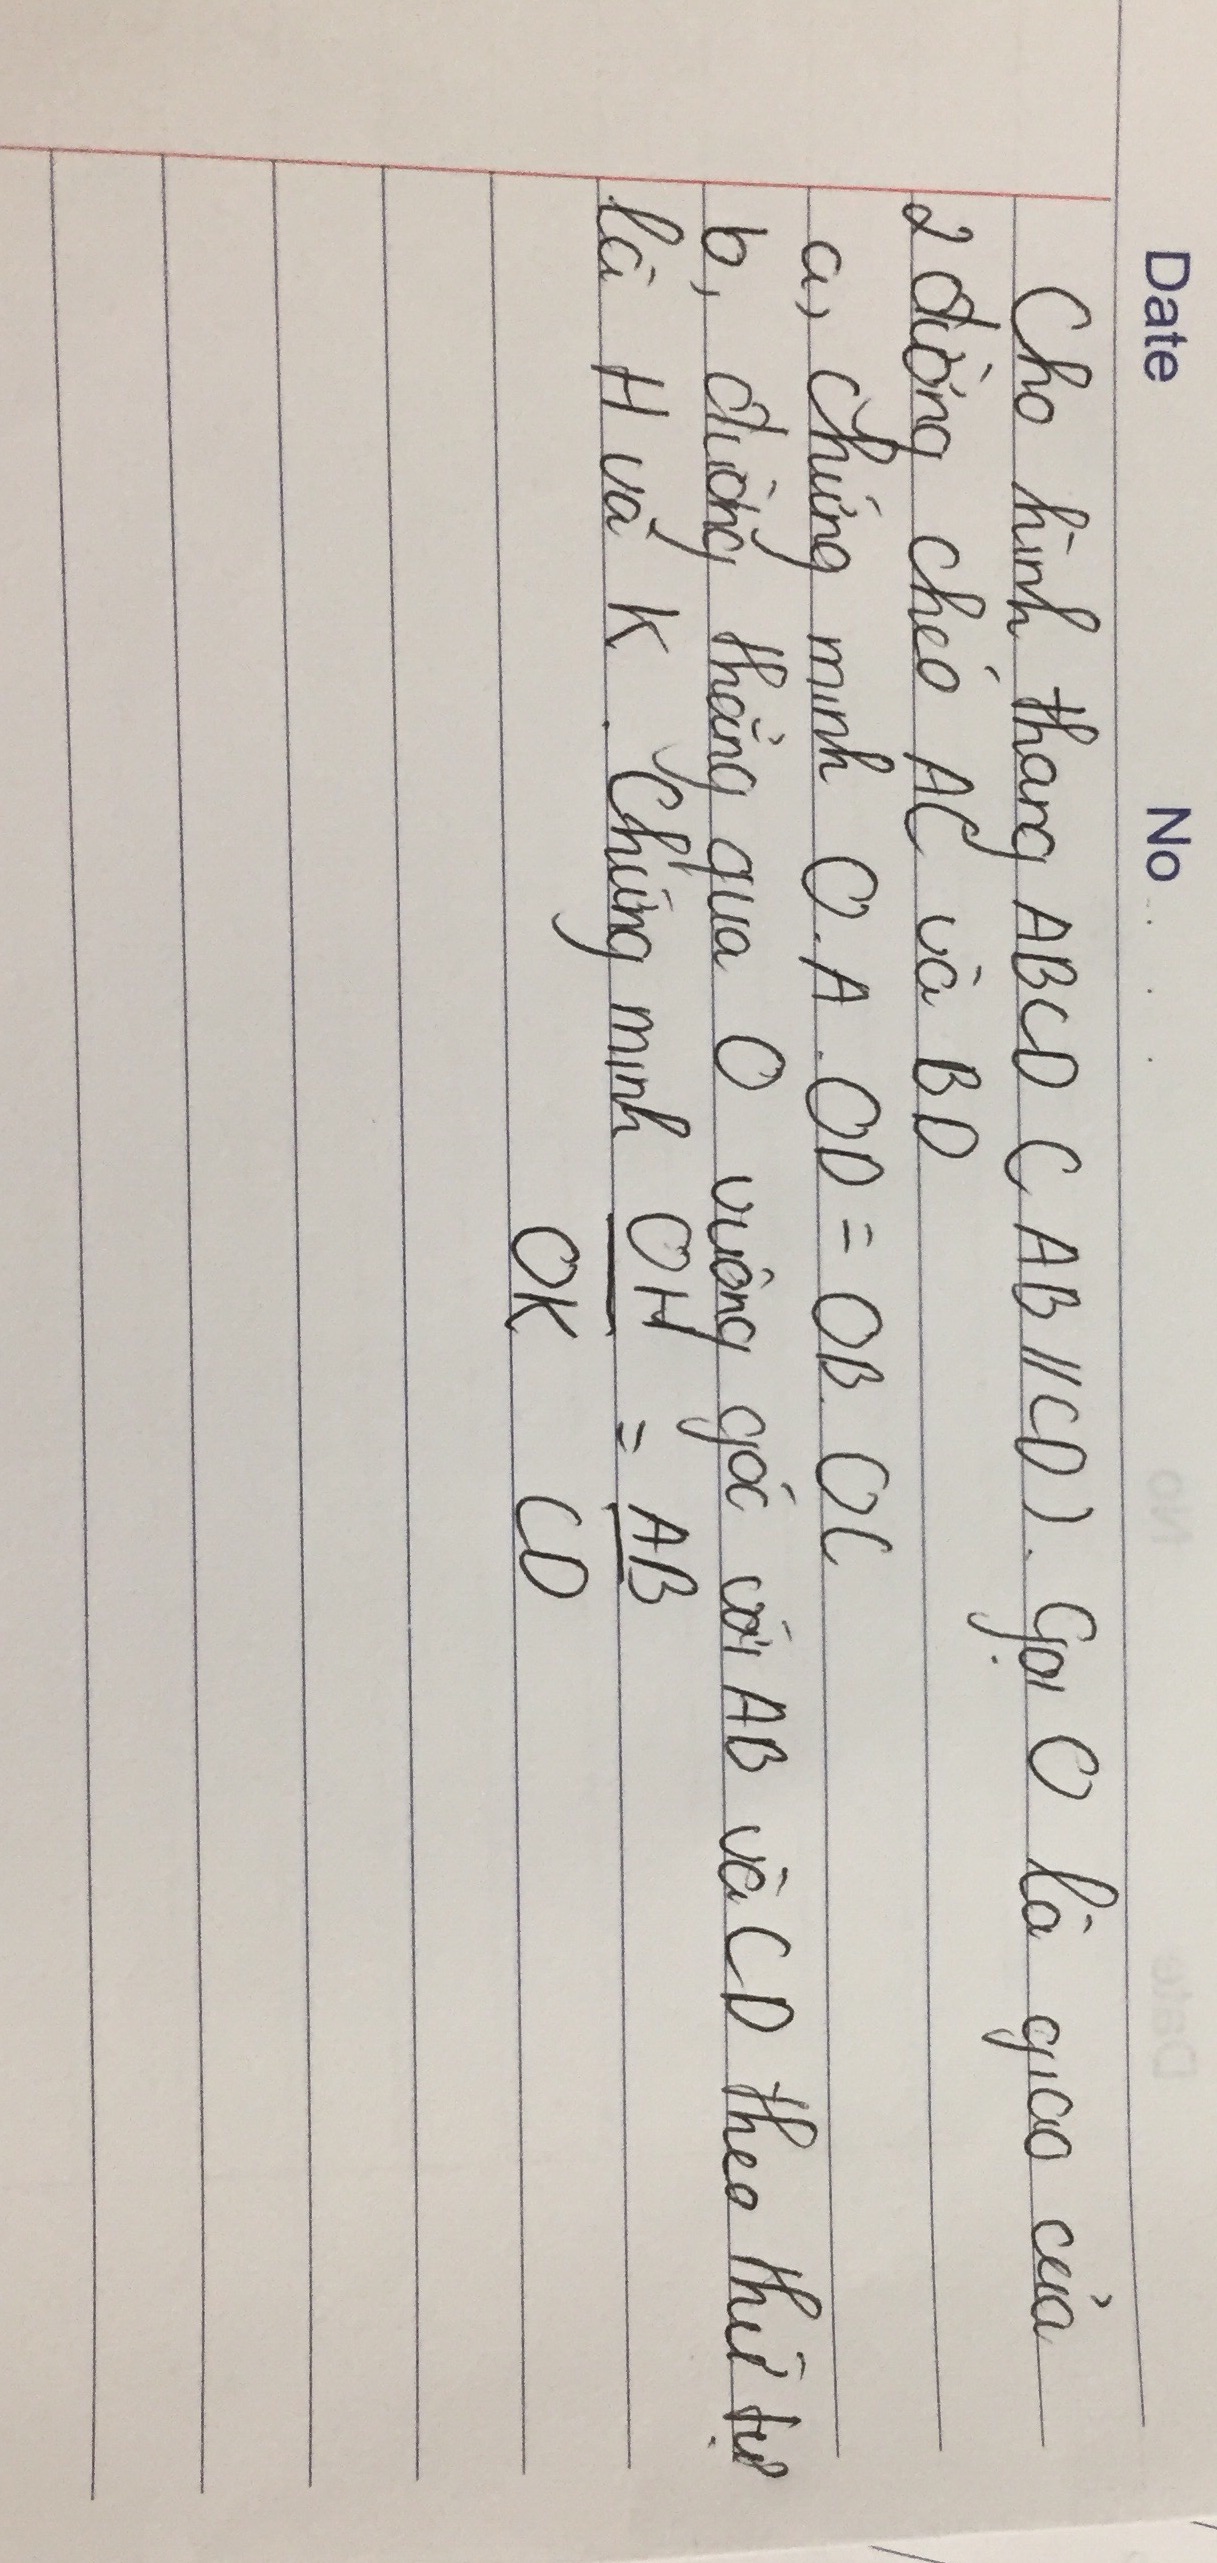 Date No
Cho hình thang ABCD ( AB // CD ). Gọi O là giao của
2 đường chéo AC và BD
a, Chứng minh O.A.OD = OB.OC
b, đường thẳng qua O vuông góc với AB và CD theo thứ tự
là H và K. Chứng minh OH = AB
OK CD